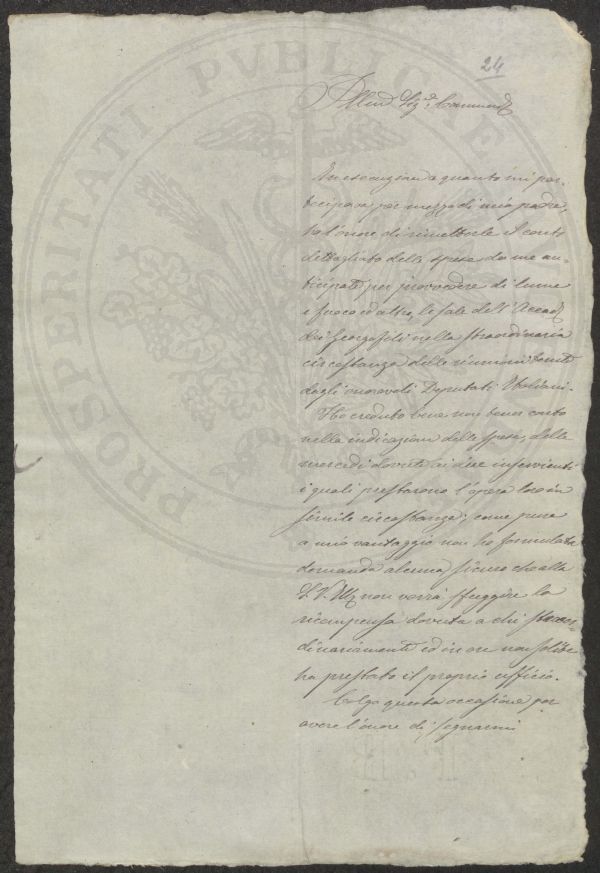 24
Illmo Sigr. Commend
In esecuzione a quanto mi par-
tecipava per mezzo di mio padre,
ho l'onore di rimetterle il conto
dettagliato delle spese da me an-
ticipate per provvedere di lume
e fuoco ed altro, le sale dell'Accad
dei Georgofili nella straordinaria
circostanza delle riunioni tenute
dagli onorevoli Deputati Italiani.
Ho creduto bene non tener conto
nella indicazione delle spese, delle
mercedi dovute ai due inservienti
i quali prestarono l'opera loro in
simile circostanza; come pure
a mio vantaggio non ho formulata
domanda alcuna sicuro che alla
S. V. Ill non vorrà sfuggire la
ricompensa dovuta a chi straor-
dinariamente ed in ore non solite
ha prestato il proprio ufficio.
Colgo questa occasione per
avere l'onore di segnarmi
PROSPERITATI PVBLICAE